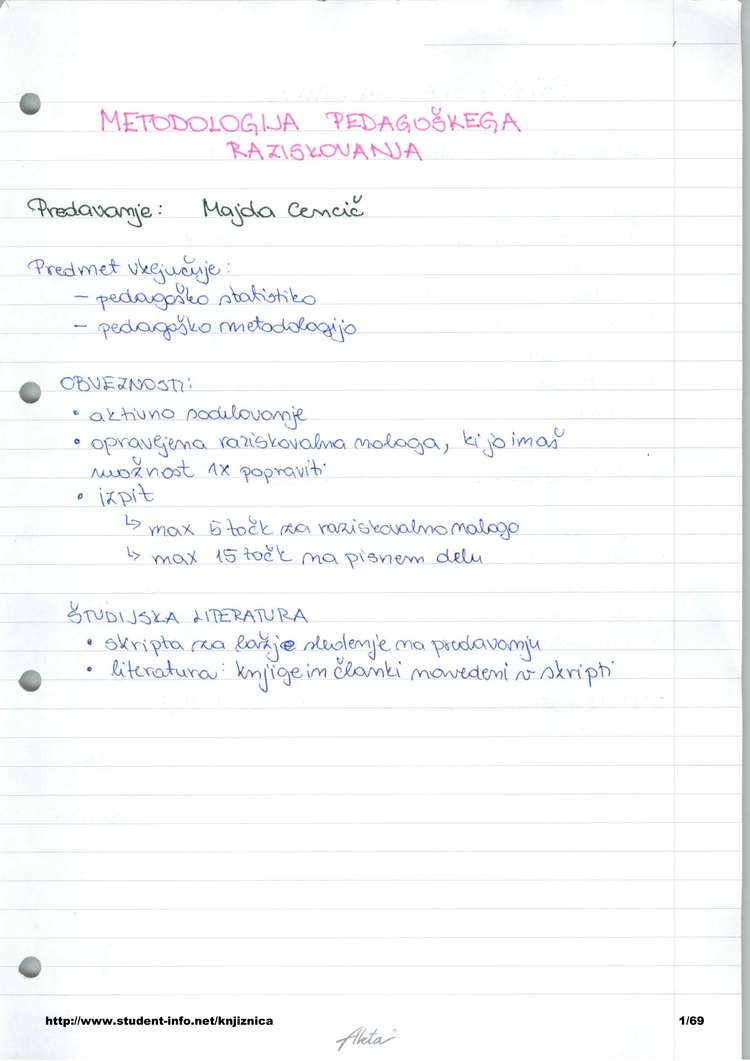 METODOLOGIJA PEDAGOŠKEGA
RAZISKOVANJA
Predavanje: Majda Cencič
Predmet vključuje:
– pedagoško statistiko
– pedagoško metodologijo
OBVEZNOSTI:
• aktivno sodelovanje
• opravljena raziskovalna naloga, ki jo imaš
možnost 1x popraviti
• izpit
↳ max 5 točk za raziskovalno nalogo
↳ max 15 točk na pisnem delu
ŠTUDIJSKA LITERATURA
• skripta za lažje sledenje na predavanju
• literatura: knjige in članki navedeni v skripti
http://www.student-info.net/knjiznica 1/69
Akta